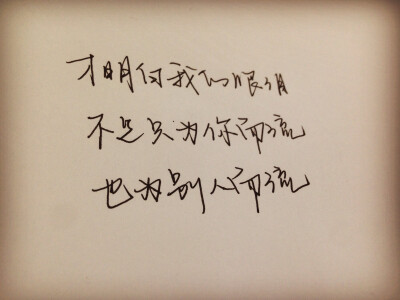 才明白我的眼泪
不是只为你而流
也为别人而流